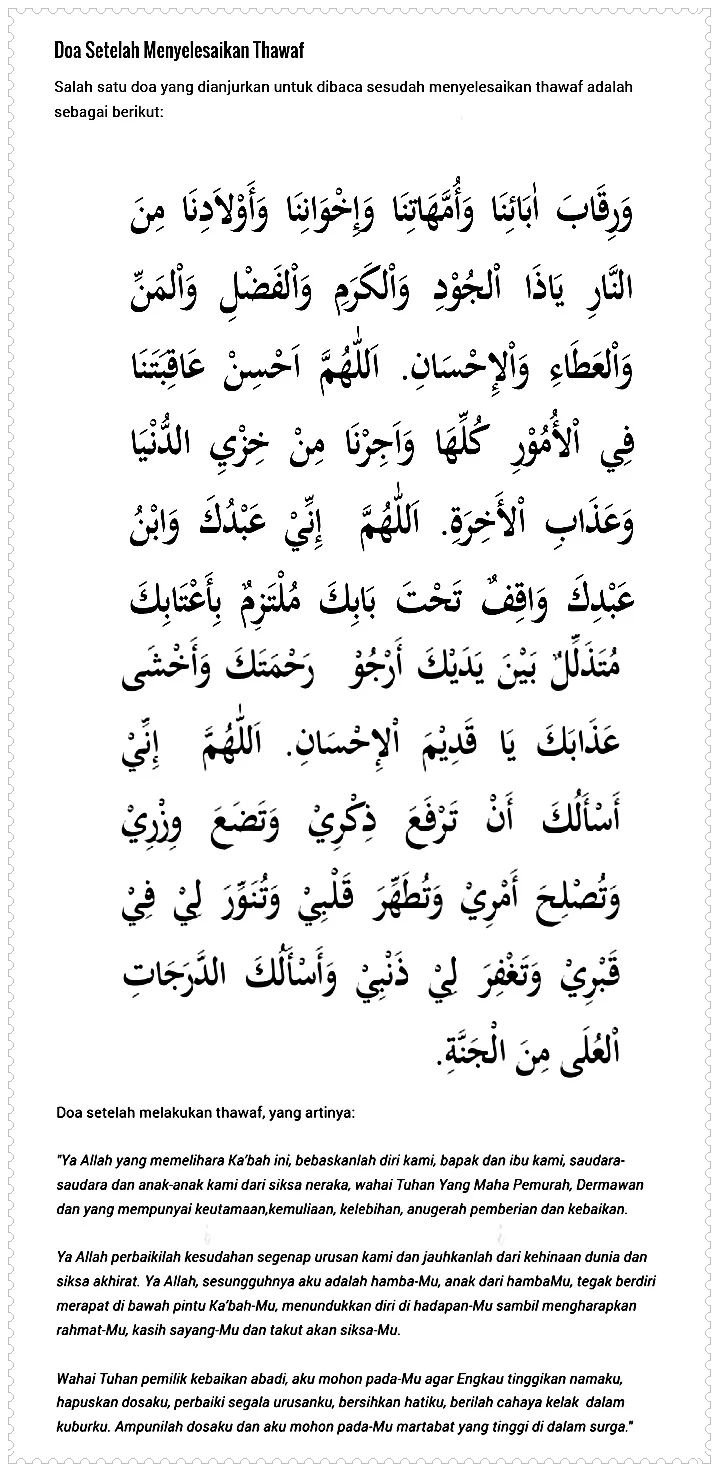 Doa Setelah Menyelesaikan Thawaf
Salah satu doa yang dianjurkan untuk dibaca sesudah menyelesaikan thawaf adalah
sebagai berikut:
وَرِقَابَ اٰبَائِنَا وَأُمَّهَاتِنَا وَإِخْوَانِنَا وَأَوْلَادِنَا مِنَ
النَّارِ يَاذَا اْلجُوْدِ وَاْلكَرَمِ وَاْلفَضْلِ وَاْلمَنِّ
وَاْلعَطَاءِ وَاْلإِحْسَانِ. اَللّٰهُمَّ اَحْسِنْ عَاقِبَتَنَا
فِي اْلأُمُوْرِ كُلِّهَا وَاَجِرْنَا مِنْ خِزْيِ الدُّنْيَا
وَعَذَابِ اْلأَخِرَةِ. اَللّٰهُمَّ إِنِّيْ عَبْدُكَ وَابْنُ
عَبْدِكَ وَاقِفٌ تَحْتَ بَابِكَ مُلْتَزِمٌ بِأَعْتَابِكَ
مُتَذَلِّلٌ بَيْنَ يَدَيْكَ أَرْجُوْ رَحْمَتَكَ وَأَخْشَى
عَذَابَكَ يَا قَدِيْمَ اْلإِحْسَانِ. اَللّٰهُمَّ إِنِّيْ
أَسْأَلُكَ أَنْ تَرْفَعَ ذِكْرِيْ وَتَضَعَ وِزْرِيْ
وَتُصْلِحَ أَمْرِيْ وَتُطَهِّرَ قَلْبِيْ وَتُنَوِّرَ لِيْ فِيْ
قَبْرِيْ وَتَغْفِرَ لِيْ ذَنْبِيْ وَأَسْأَلُكَ الدَّرَجَاتِ
اْلعُلَى مِنَ الْجَنَّةِ.
Doa setelah melakukan thawaf, yang artinya:
"Ya Allah yang memelihara Ka'bah ini, bebaskanlah diri kami, bapak dan ibu kami, saudara-
saudara dan anak-anak kami dari siksa neraka, wahai Tuhan Yang Maha Pemurah, Dermawan
dan yang mempunyai keutamaan,kemuliaan, kelebihan, anugerah pemberian dan kebaikan.
Ya Allah perbaikilah kesudahan segenap urusan kami dan jauhkanlah dari kehinaan dunia dan
siksa akhirat. Ya Allah, sesungguhnya aku adalah hamba-Mu, anak dari hambaMu, tegak berdiri
merapat di bawah pintu Ka'bah-Mu, menundukkan diri di hadapan-Mu sambil mengharapkan
rahmat-Mu, kasih sayang-Mu dan takut akan siksa-Mu.
Wahai Tuhan pemilik kebaikan abadi, aku mohon pada-Mu agar Engkau tinggikan namaku,
hapuskan dosaku, perbaiki segala urusanku, bersihkan hatiku, berilah cahaya kelak dalam
kuburku. Ampunilah dosaku dan aku mohon pada-Mu martabat yang tinggi di dalam surga."